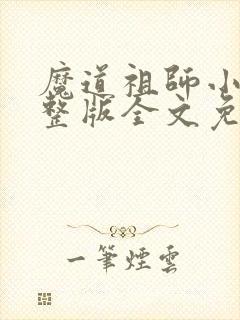 魔道祖師小
整版全文免
一筆煙雲